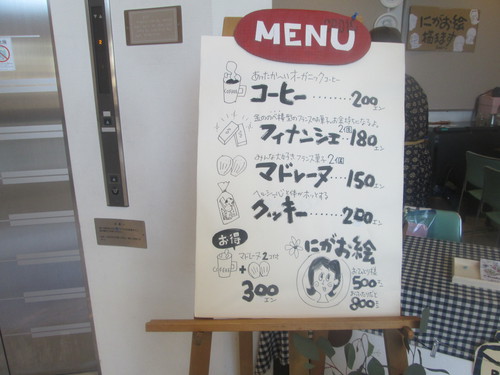 MENU
あったか〜いオーガニックコーヒー
コーヒー……200エン
フィナンシェ 2個 180エン
みんな大好きフランス菓子 2個
マドレーヌ……150エン
クッキー……200エン
お得
マドレーヌ2つ付
COFFEE
+
300エン
にがお絵
500エン
800エン
にがお絵